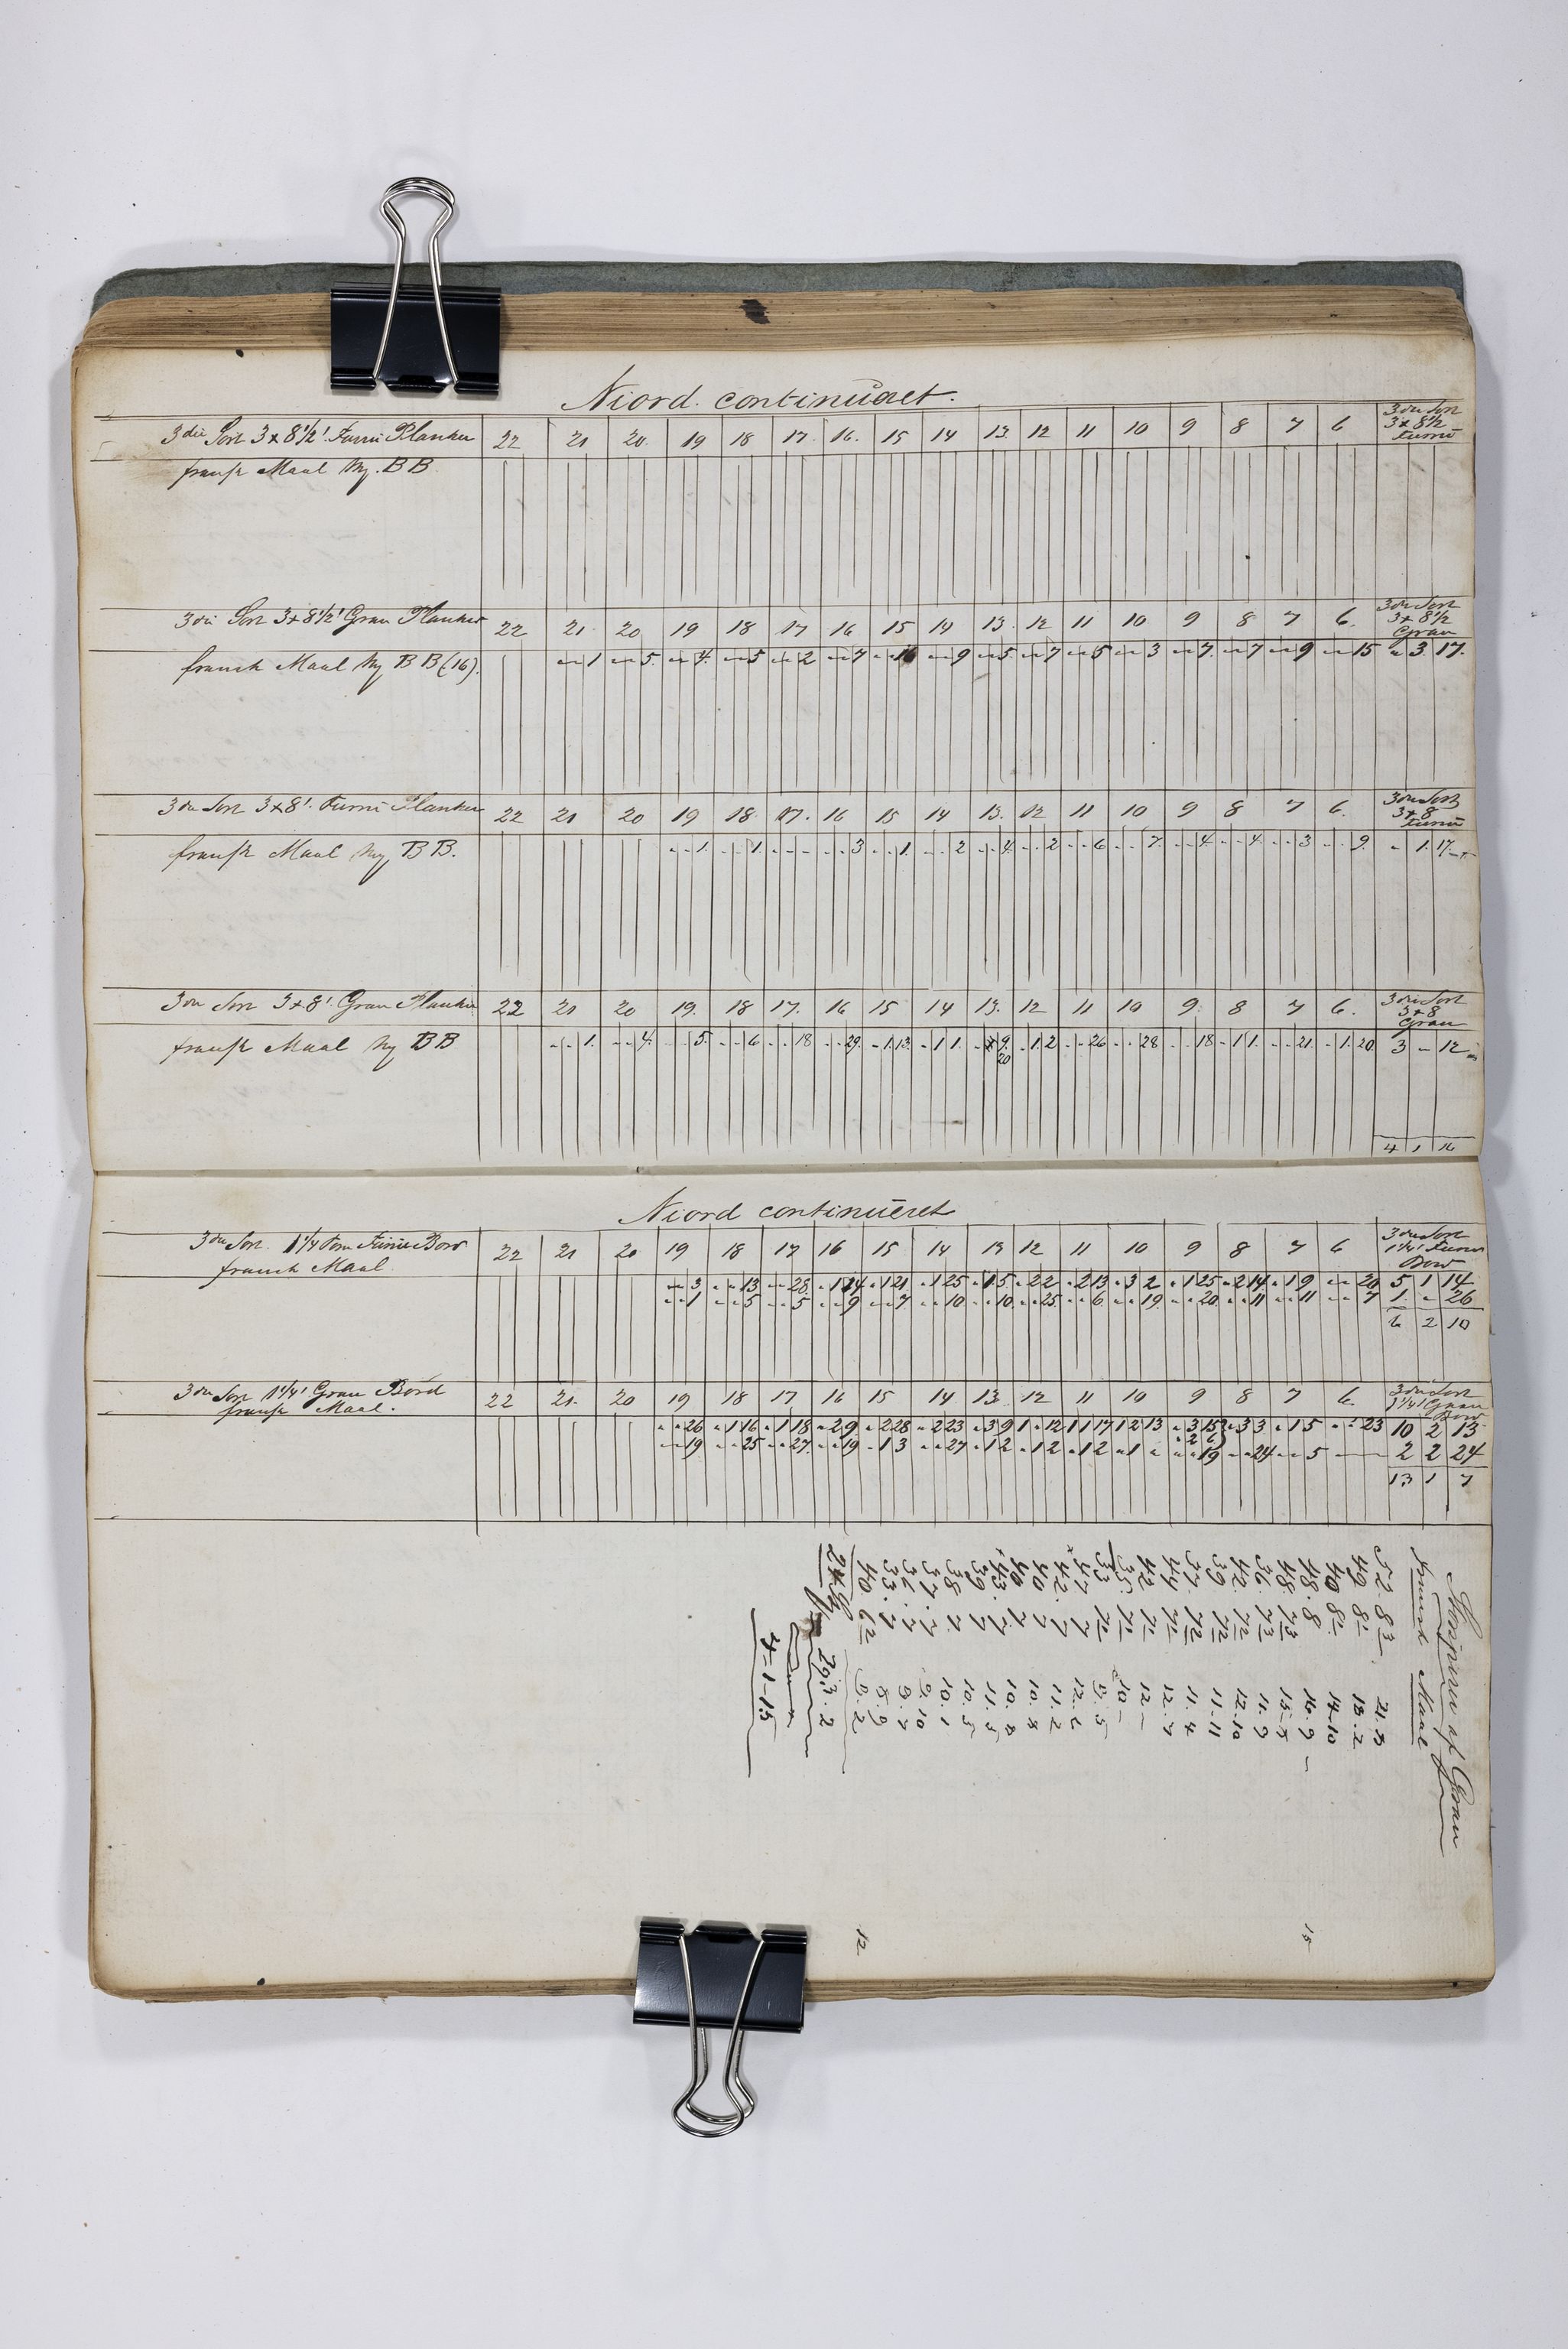 Niord continueret.
3die Sort 3 x 8 1/2' Furru Planker 22 21 20. 19 18 17. 16. 15 14 13. 12 11 10 9 8 7 6 3die Sort
3 x 8 1/2
Furru
fransk Maal Ny. BB
3die Sort 3 x 8 1/2' Gran Planker 22 21 20 19 18 17 16 15 14 13. 12 11 10 9 8 7 6. 3die Sort
3 x 8 1/2
Gran
fransk Maal Ny BB (16). 1 5 4. 5 2 7 9 5 7 5 3 7. 7 9 15 3. 17.
3die Sort 3 x 8'. Furru Planker 22 21 20 19 18 17. 16 15 14 13. 12 11 10 9 8 7 6. 3die Sort
3 x 8
Furru
fransk Maal Ny BB. 1. 1. - 3 1. 2 4. 2 6 7. 4. 4. 3 9. - 1. 17
3die Sort 3 x 8'. Gran Planker 22 21 20 19. 18 17. 16 15 14 13. 12 11 10 9 8 7 6. 3die Sort
3 x 8
Gran
fransk Maal Ny BB 1. 4. 5. 6 18 29. 1. 13. 1 1. 9. 1. 2 26 28 18 1 1. 21. 1. 20. 3 - 12
20
4 1 16
Niord continueret
3die Sort 1 1/4 Tom Furru Bord 22 21 20 19 18 17 16 15 14 13 12 11 10 9 8 7 6 3die Sort
1 1/4' Furru
Bord
fransk Maal
3 13 28 1 14 1 21 1 25 1 5 2 22 2 13 3 2 1 25 2 14 1 9 20 5 1 14
1 5 5 9 7 10 10 25 6 19 20 11 11 7 1. - 26
6 2 10
3die Sort 1 1/4' Gran Bord 22 21. 20 19 18 17 16 15 14 13. 12 11 10 9 8 7 6. 3die Sort
1 1/4' Gran
Bord
fransk Maal.
26 1 16 1 18 2 9 2 28 2 23 3 9 1 - 12 1 1 17 1 2 13 3 15 3 3 1 5 23 10 2 13
2 6
19 25 27 19 1 3 27 1 2 1 2 1 2 1 - 19 24 5 2 2 24
13 1 7
af Gran
fransk Maal
52. 8 3 21. 3
49 8 1 18. 2
40 8 1 14. 10
48. 8 16. 9
48. 7 3 15. 5
36. 7 3 11. 9
42. 7 2 12. 10
39 7 2 11. 11
37. 7 2 11. 4
44 7 1 12. 7
42 7 1 12 -
35. 7 1 10 -
33 7 1 9. 5
47 7 12. 6
42. 7 11. 2
40 7 10. 8
40 7 10. 8
43. 7 11. 5
39 7 10. 5
38 7 10. 1
37. 7 9. 10
36 7 9. 7
33. 7 8. 9
40 6 2 9. 2
24 293. 2
4 - 1 - 15
12
15